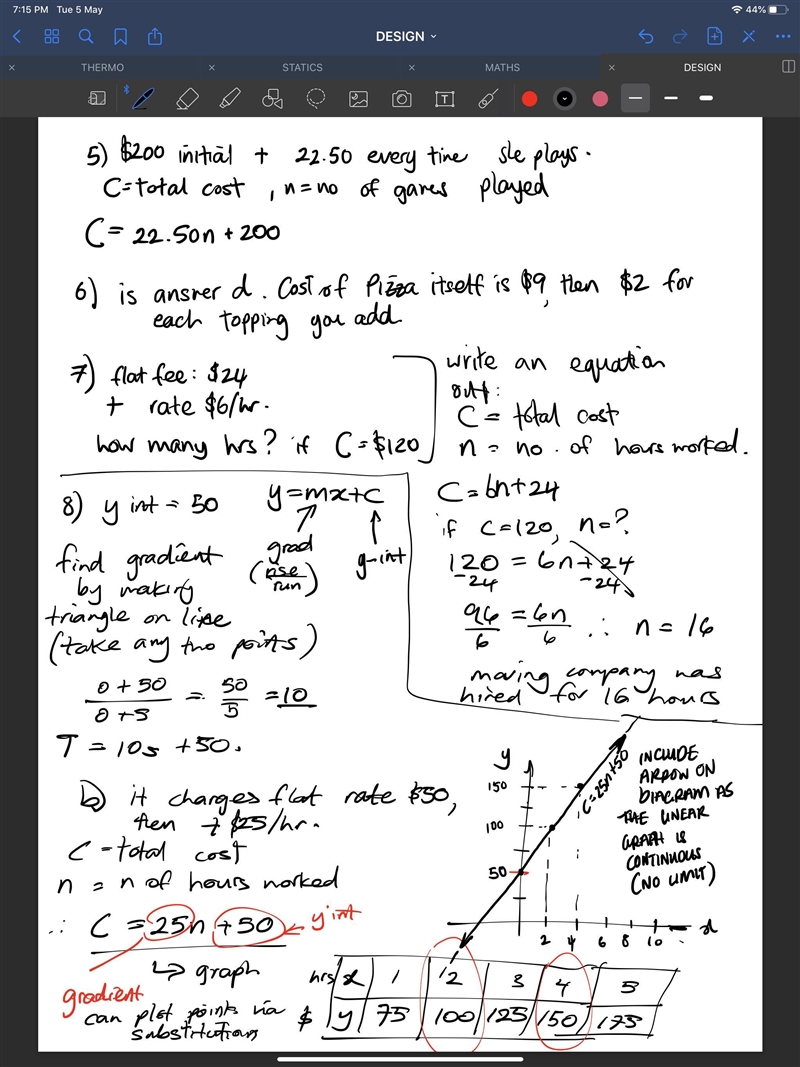 7:15 PM Tue 5 May
44%
DESIGN
THERMO
STATICS
MATHS
DESIGN
5) $200 initial + 22.50 every time she plays.
C = total cost , n = no of games played
C = 22.50n + 200
6) is answer d. Cost of Pizza itself is $9, then $2 for
each topping you add
7) flat fee: $24
+ rate $6/hr.
how many hrs? if C = $120
write an equation
out:
C = total cost
n = no. of hours worked.
C = 6n + 24
if C = 120, n = ?
120 = 6n + 24
-24 -24
96/6 = 6n/6 ∴ n = 16
moving company was
hired for 16 hours
8) y int = 50
y = mx + c
grad
(rise/run)
y-int
find gradient
by making
triangle on line
(take any two points)
0 + 50 / 0 + 5 = 50/5 = 10
T = 10s + 50.
b) it charges flat rate $50,
then + $25/hr.
C = total cost
n = n of hours worked
∴ C = 25n + 50 ← y int
↳ graph
gradient
can plot points via
substitution
y
150
100
50
2 4 6 8 10
x
C = 25n + 50
INCLUDE
ARROW ON
DIAGRAM AS
THE LINEAR
GRAPH IS
CONTINUOUS
(NO LIMIT)
hrs x 1 2 3 4 5
$ y 75 100 125 150 175